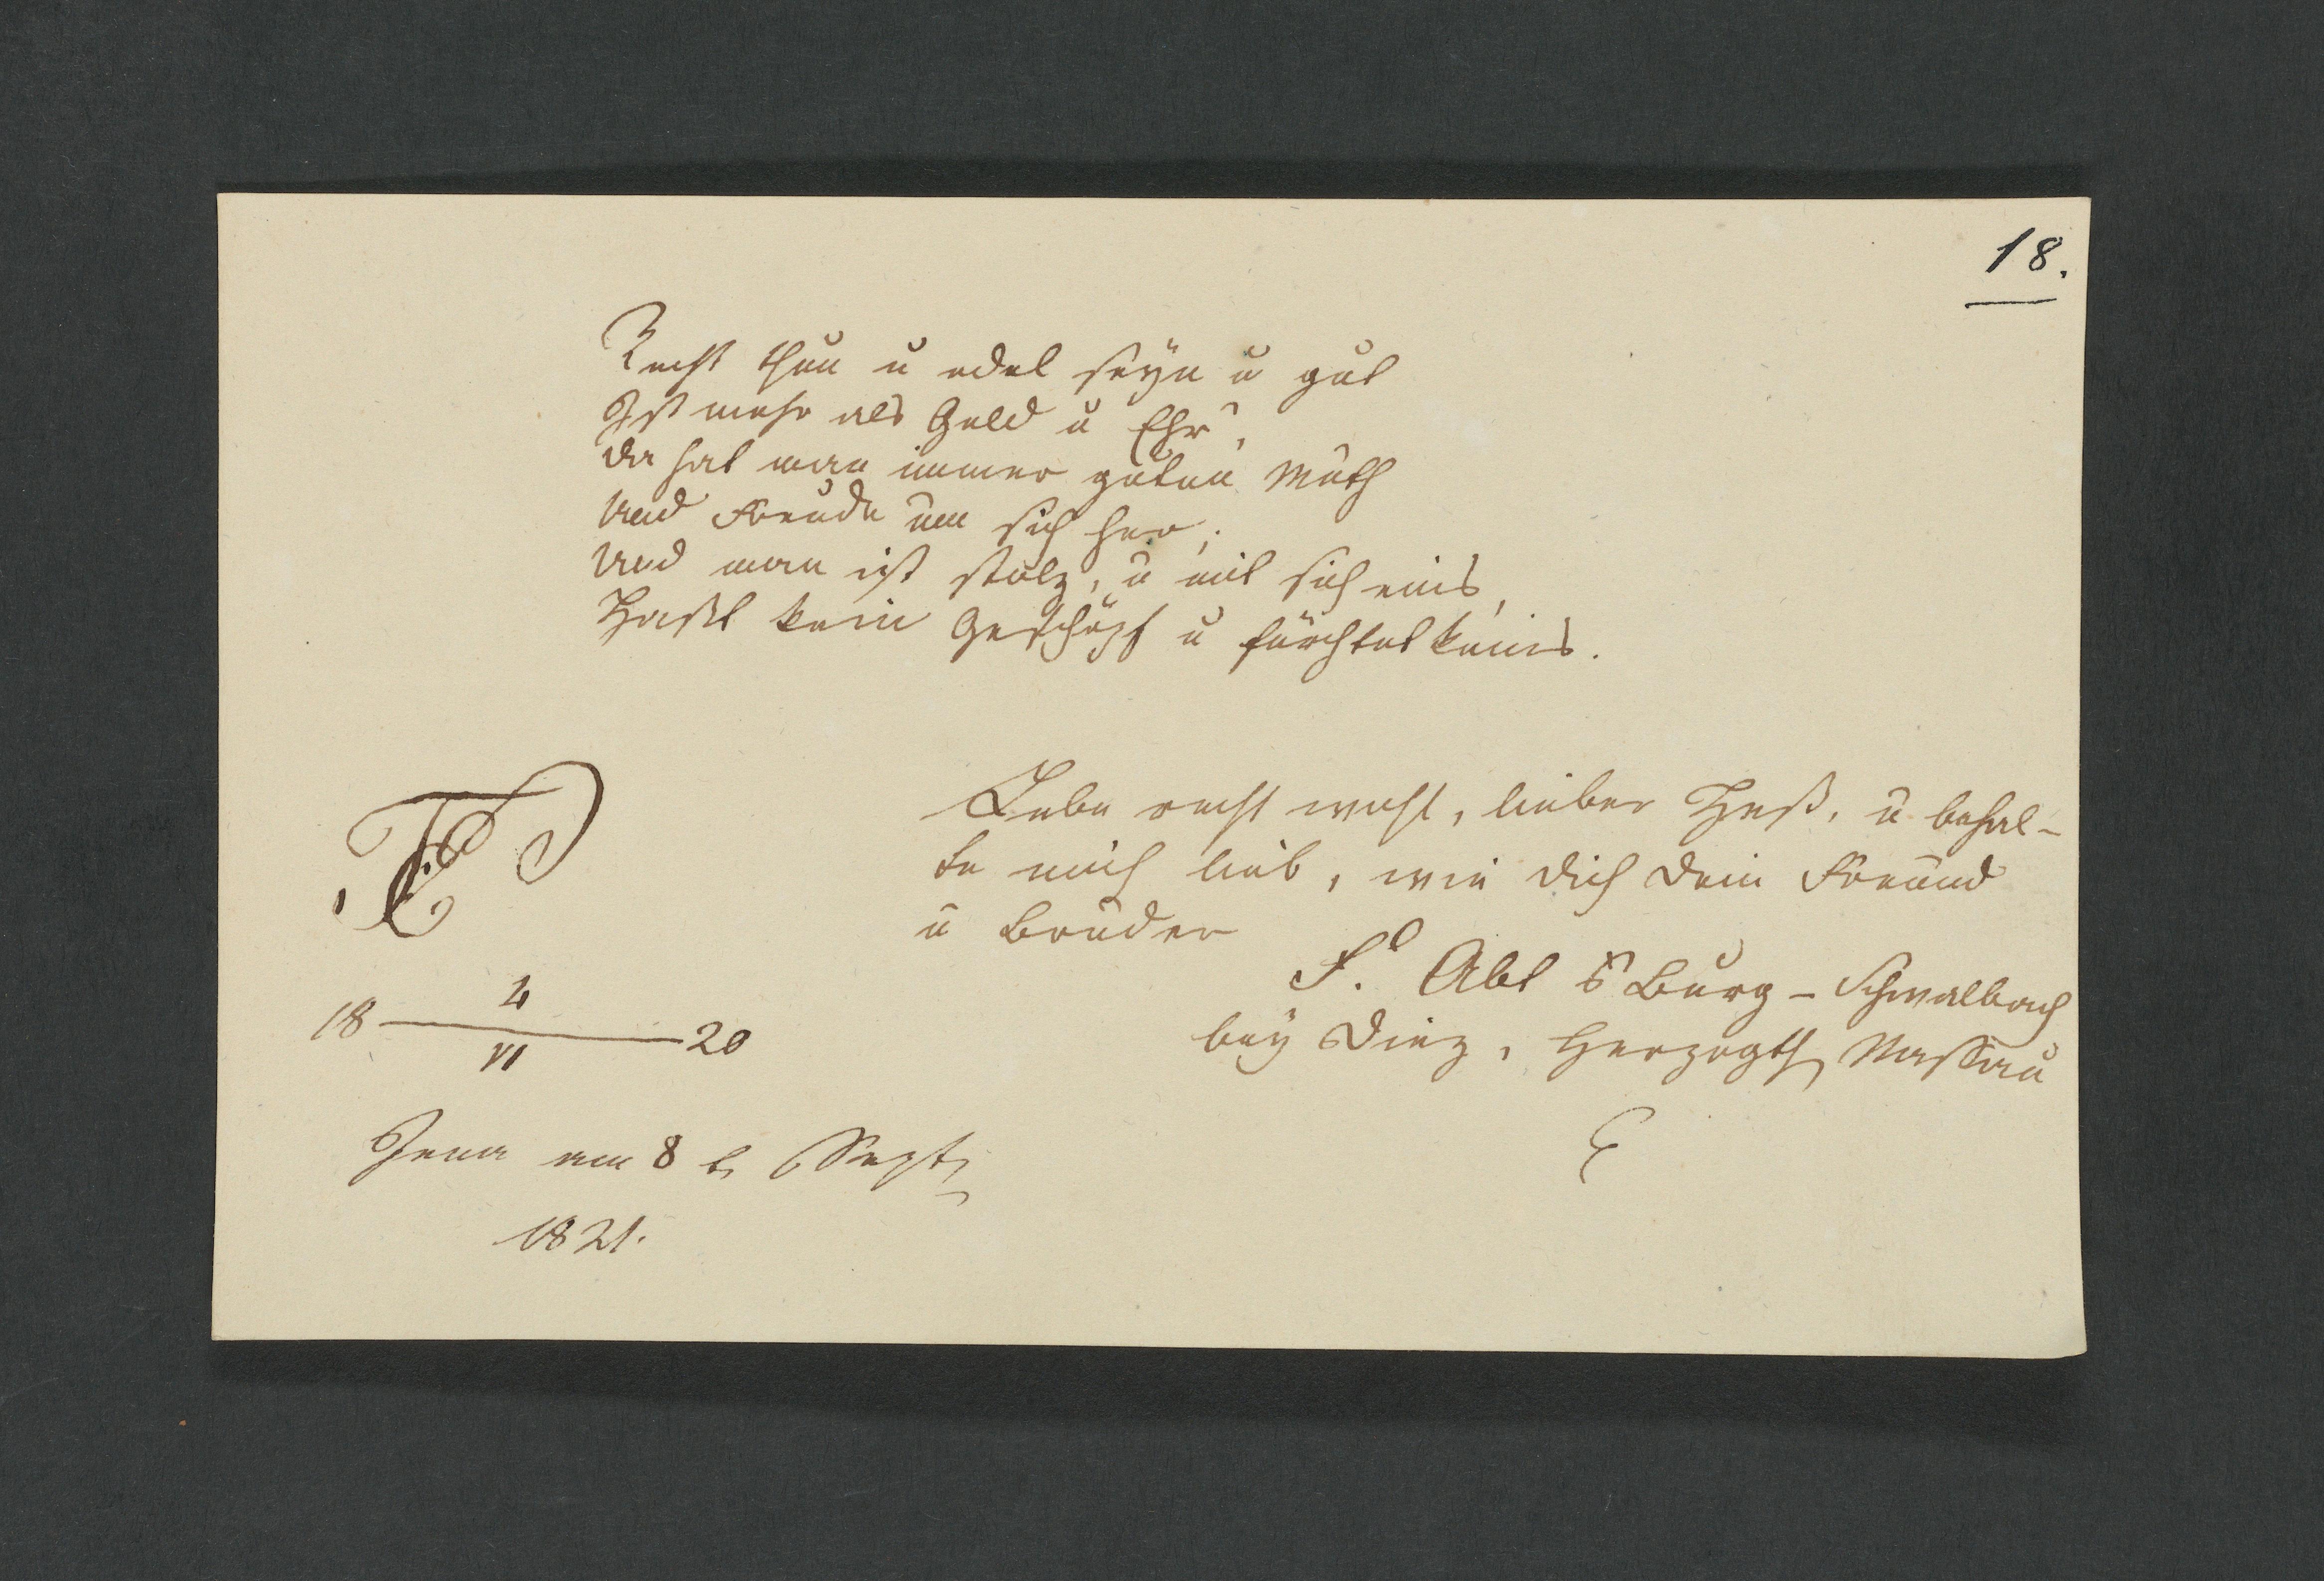 18.
Recht thun u edel seyn u gut
Ist mehr als Geld u Ehr',
Da hat man immer guten Muth
Und Freude um sich her;
Und man ist stolz, u mit sich eins,
Haßt kein Geschöpf u fürchtet keins.
Lebe recht wohl, lieber Heß, u behal-
te mich lieb, wie dich dein Freund
u Bruder
F. Abt Burg-Schwalbach
bey Diez, Herzogth Nassau
18 4 VI 20
Jena am 8 Sept
1821.